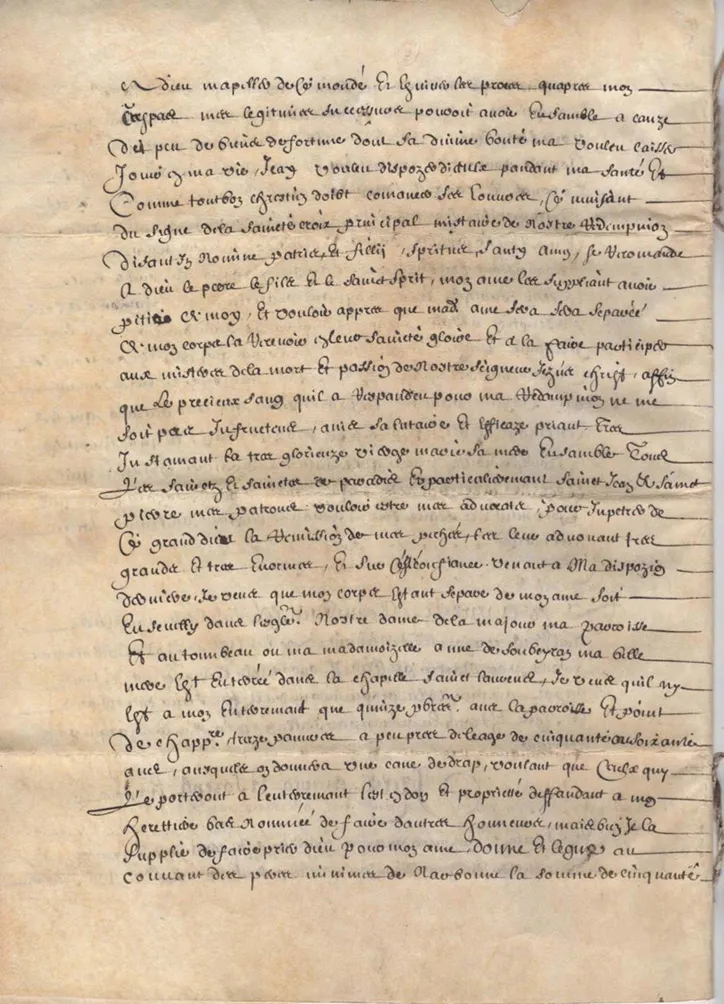 A Dieu mapeller de ce monde Et Esviter les proces quapres mon
Trespas mes legitimes successeurs pouroit avoir Ensamble a cauze
Du peu de biens de fortune dont sa divine bonté ma voulcu laisser
Jouir En ma vie, Jean voulcu dispozer dicelux pandant ma santé Et
Comme tout bon chrestien doibt comancer ses Couvres, me munisant
du signe de la saincte croix principal mistaire de Nostre Redempnion
disant In Nomine patris, Et fillij, spritus, santy amen, Je Recomande
A dieu le pere le fils Et le sainct sprit, mon ame les supliant avoir
pitié de moy, Et vouloir appres que mad. ame sera sera separée
de mon corps la Recevoir En leur saincte gloire Et a la faire participer
aux misteres de la mort Et passion de Nostre seigneur Jezus christ, affin
que Le precieux sang quil a Respandeu pour ma Redempnion ne me
soit point Infructeux, ains salutaire Et Efficaze priant tres
Instamant la tres glorieuze vierge marie sa mere Ensamble Tous
Les saincts Et sainctes de paradis Et particulierement sainct Jean Et sainct
pierre mes patrons vouloir estre mes advocats, pour Inpetrer de
Ce grand dieu la Remission de mes peches, les leur advouant tres
grands Et tres Enormes, Et sur Ceste Confiance. venant a Ma dispozion
derniere Je veux que mon corps Estant separe de mon ame soit
Ensevelly dans leglze. Nostre dame de la majour ma parroisse
Et au tombeau ou ma madamoizelle anne de soubeyran ma belle
mere Est Enterrée dans la chapelle sainct laurens, Je veux quil ny
Est a mon Enterremant que quinze pbres. avec la parroisse Et point
de chappre. traze pauvres a peu pres de leage de cinquante ou soixante
ans, ausquels on donnera une cane de drap, voulant que Ceulx quy
Le porteront a lenterremant lest En don Et proprieté deffandant a mon
herettiere bas Nommée de faire dautres honneurs, mais bien Je la
supplie de faire prier dieu pour mon ame, donne Et legue au
couvant des peres minimes de Narbonne la somme de cinquante